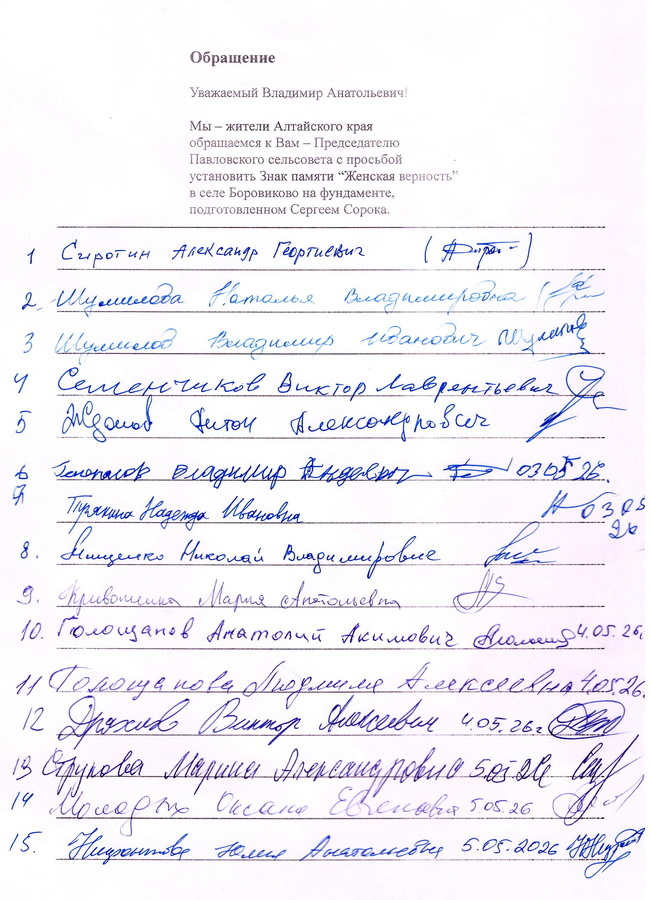 Обращение
Уважаемый Владимир Анатольевич!
Мы – жители Алтайского края
обращаемся к Вам – Председателю
Павловского сельсовета с просьбой
установить Знак памяти “Женская верность”
в селе Боровиково на фундаменте,
подготовленном Сергеем Сорока.
1 Сиротин Александр Георгиевич
2. Шумилова Наталья Владимировна
3 Шумилов Владимир Иванович
4 Семенчиков Виктор Лаврентьевич
5 Жданов Антон Александрович
6 Владимир 03.05 26.
7 Надежда Ивановна 03.05
26
8. Мищенко Николай Владимирович
9. Мария Анатольевна
10. Голощапов Анатолий Акимович 4.05.26г
11 Голощапова Людмила Алексеевна 4.05.26г
12 Виктор Алексеевич 4.05.26г
13 Струкова Марина Александровна 5.05.26
14 Молодых Оксана Евгеньевна 5.05.26
15. Юлия Анатольевна 5.05.2026